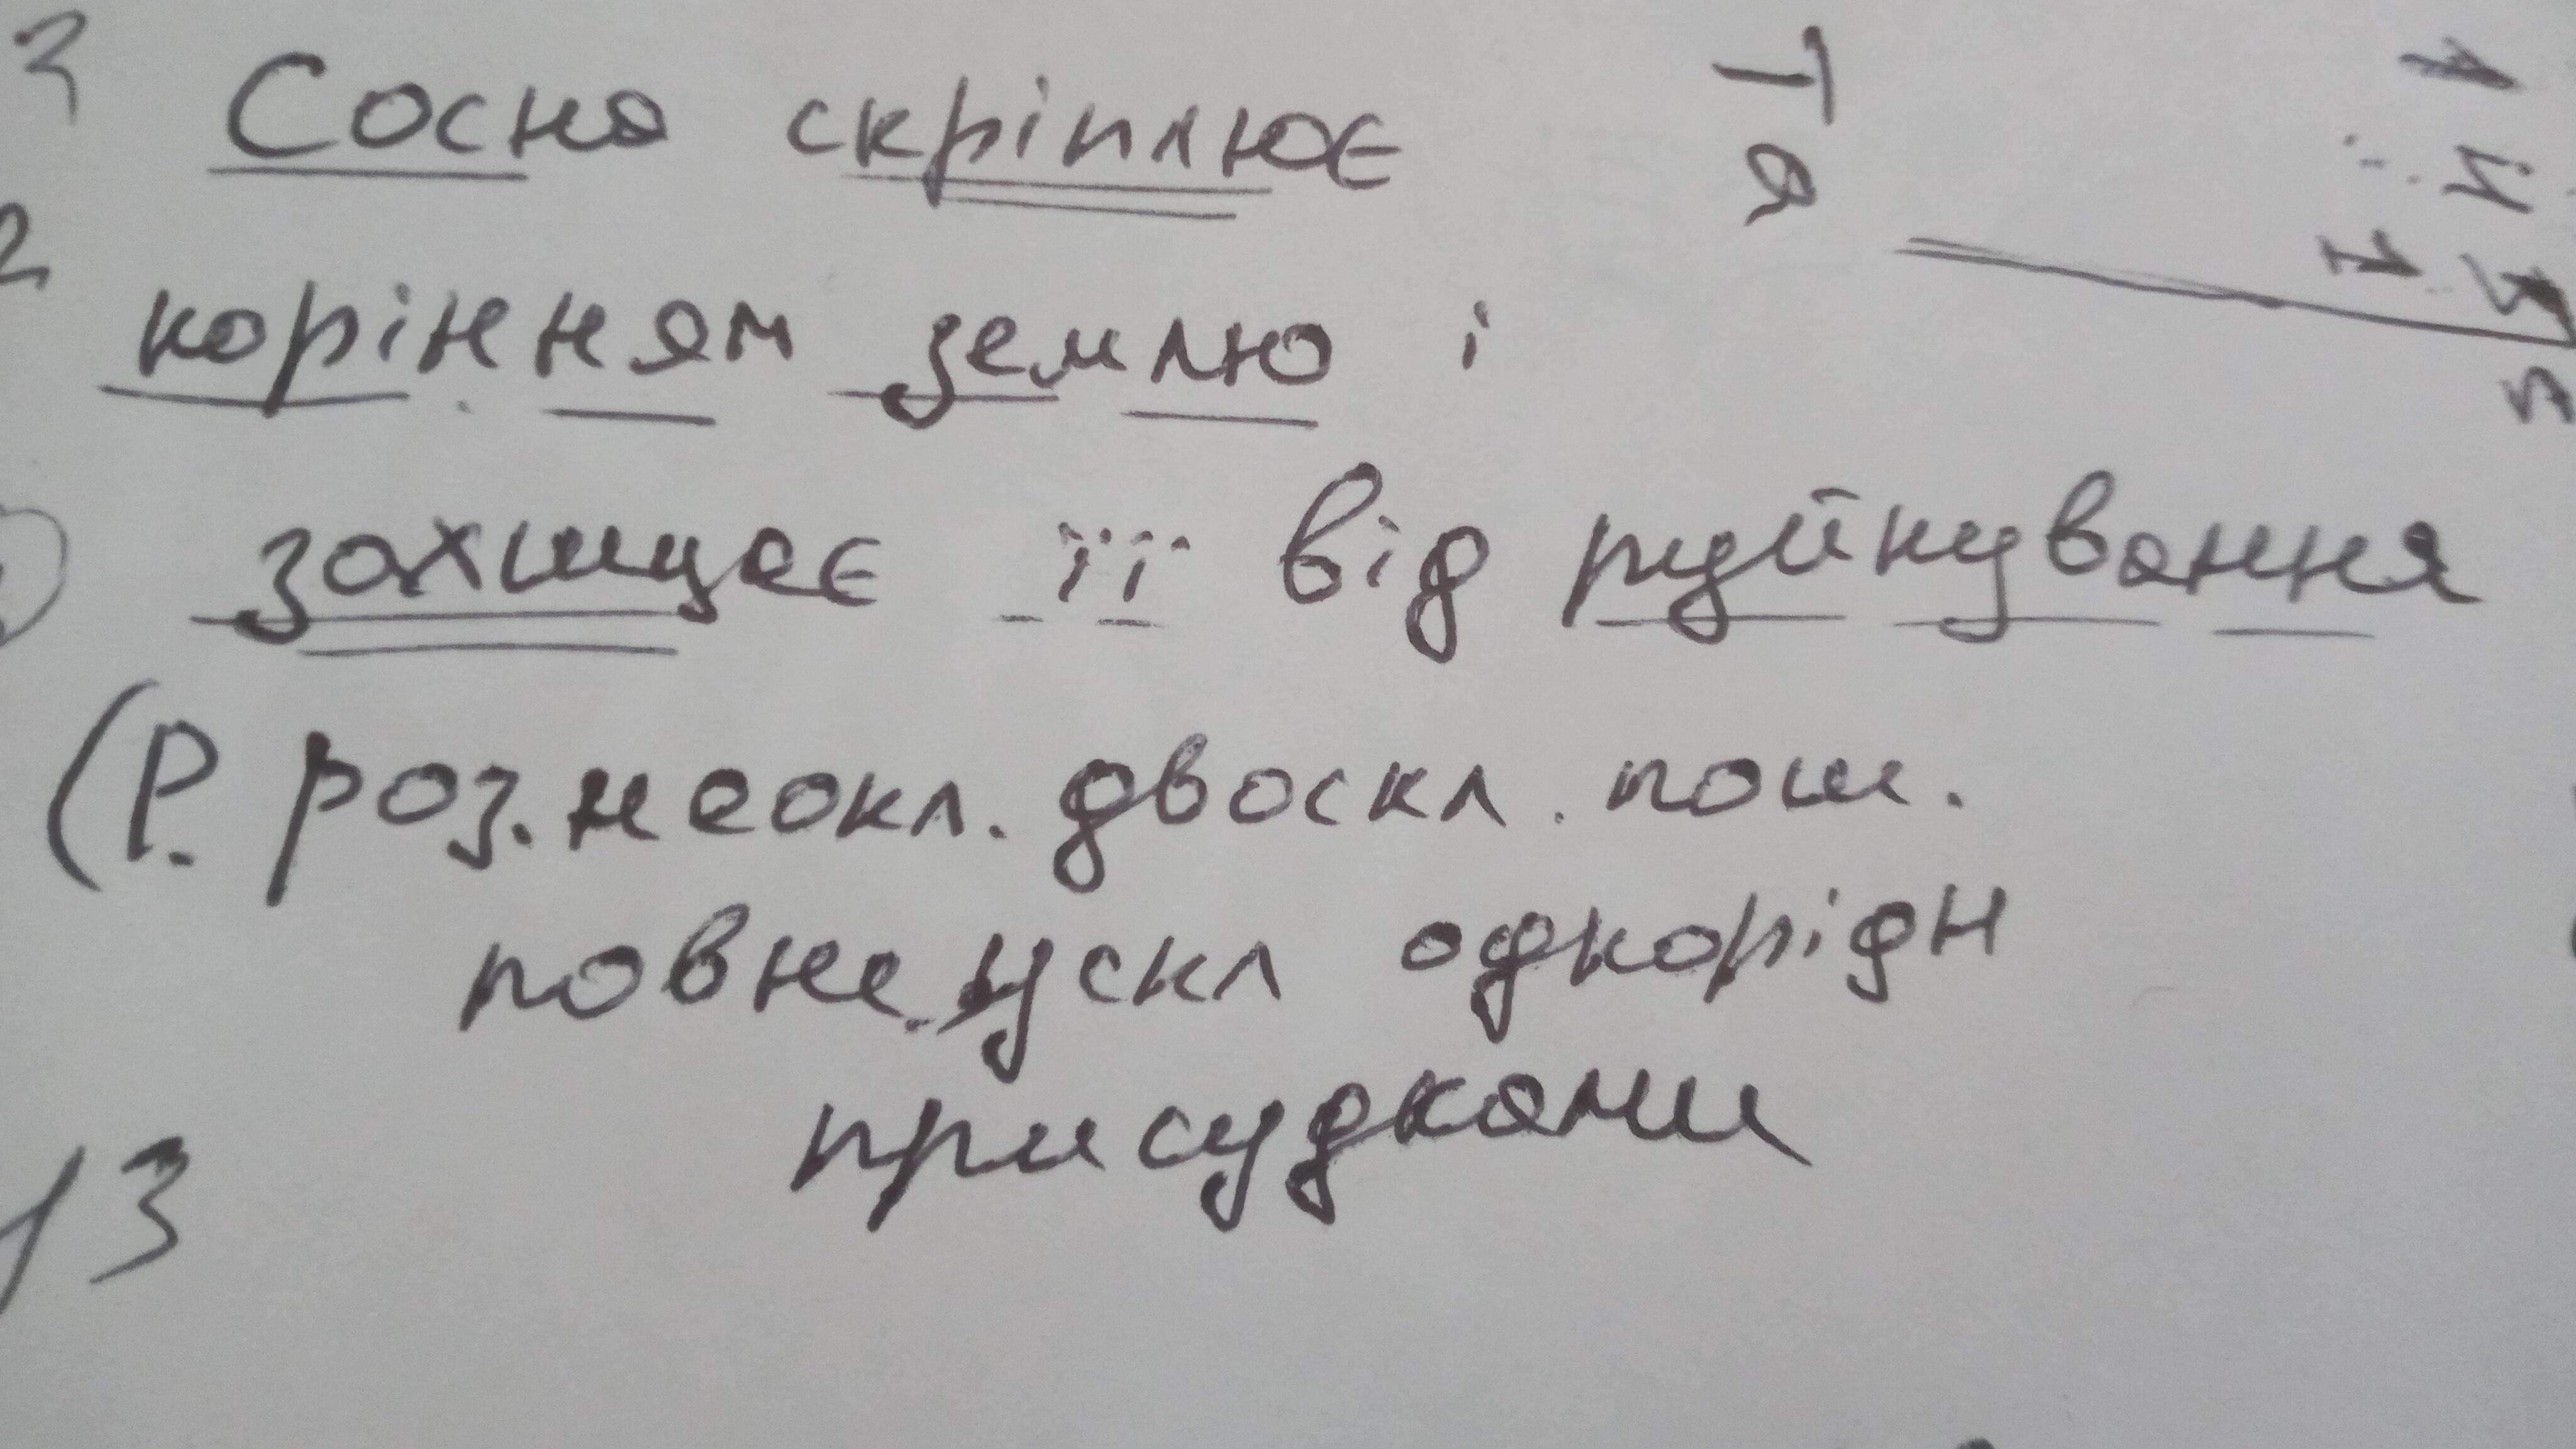 Сосна скріплює
корінням землю і
захищає її від руйнування
(Р. роз. неокл. двоскл. пош.
повне. ускл однорідн
присудками
13